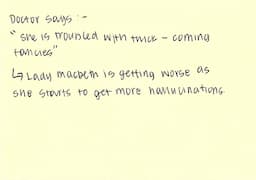 Doctor says :-
"She is troubled with thick-coming
fancies"
↳ Lady macbeth is getting worse as
she starts to get more hallucinations.